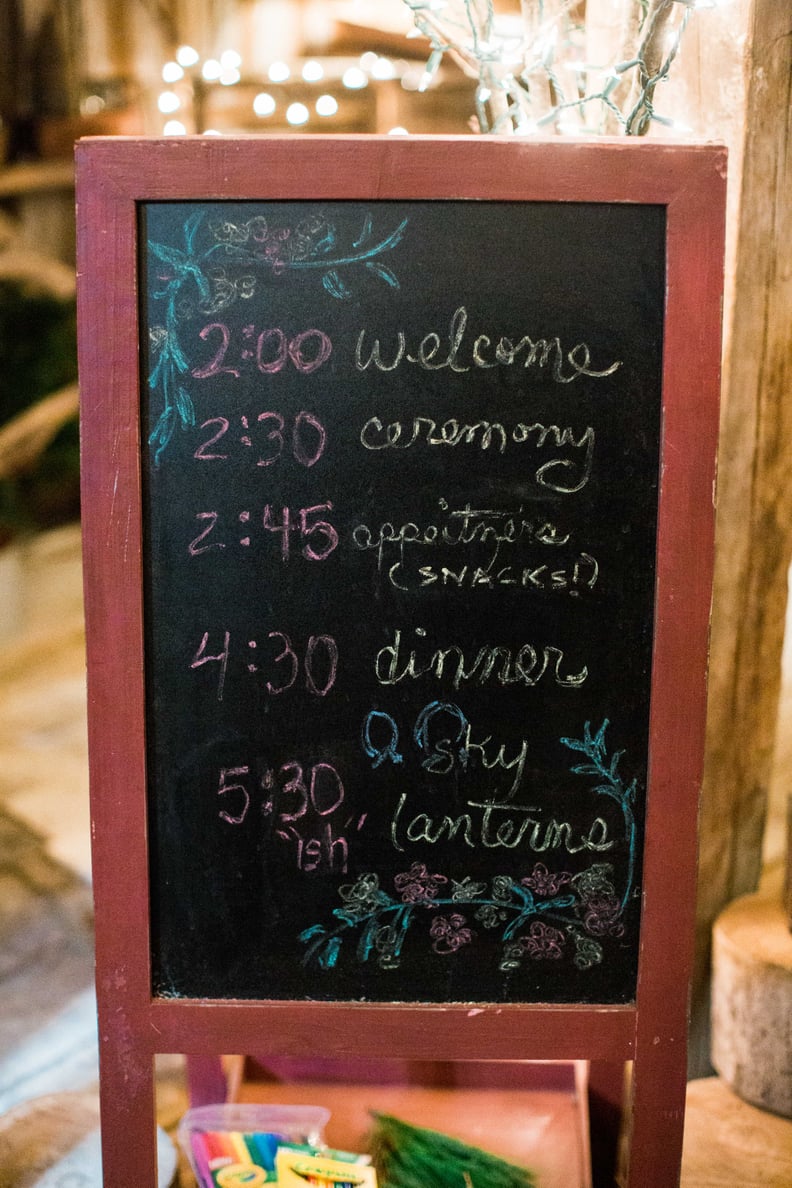 2:00 welcome
2:30 ceremony
2:45 appeitners
(SNACKS!)
4:30 dinner
sky
5:30 lanterns
"ish"
Crayola